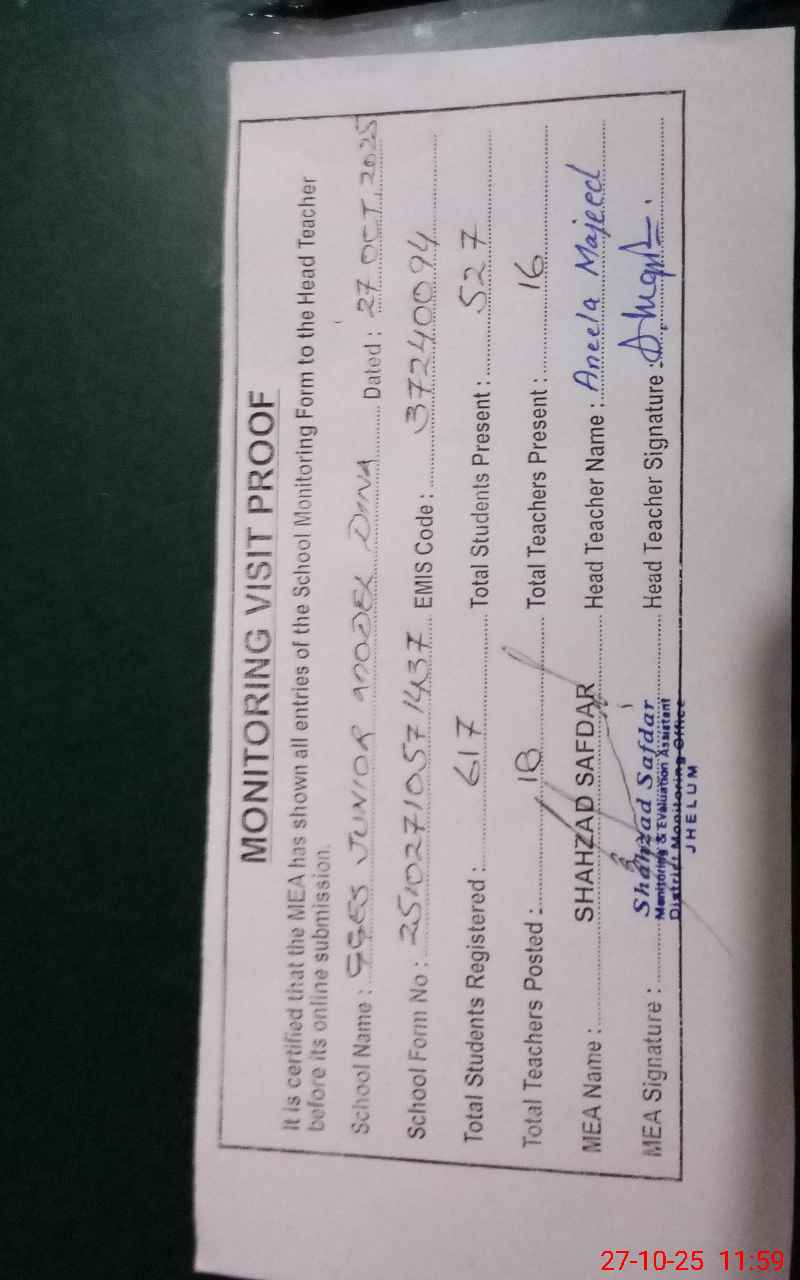 MONITORING VISIT PROOF
It is certified that the MEA has shown all entries of the School Monitoring Form to the Head Teacher
before its online submission.
School Name : GGES JUNIOR MODEL DINA Dated : 27 OCT, 2025
School Form No : 25102710571437 EMIS Code : 37240094
Total Students Registered : 617 Total Students Present : 527
Total Teachers Posted : 18 Total Teachers Present : 16
MEA Name : SHAHZAD SAFDAR Head Teacher Name : Aneela Majeed
MEA Signature : Head Teacher Signature :
Shahzad Safdar
Monitoring & Evaluation Assistant
District Monitoring Office
JHELUM
27-10-25 11:59